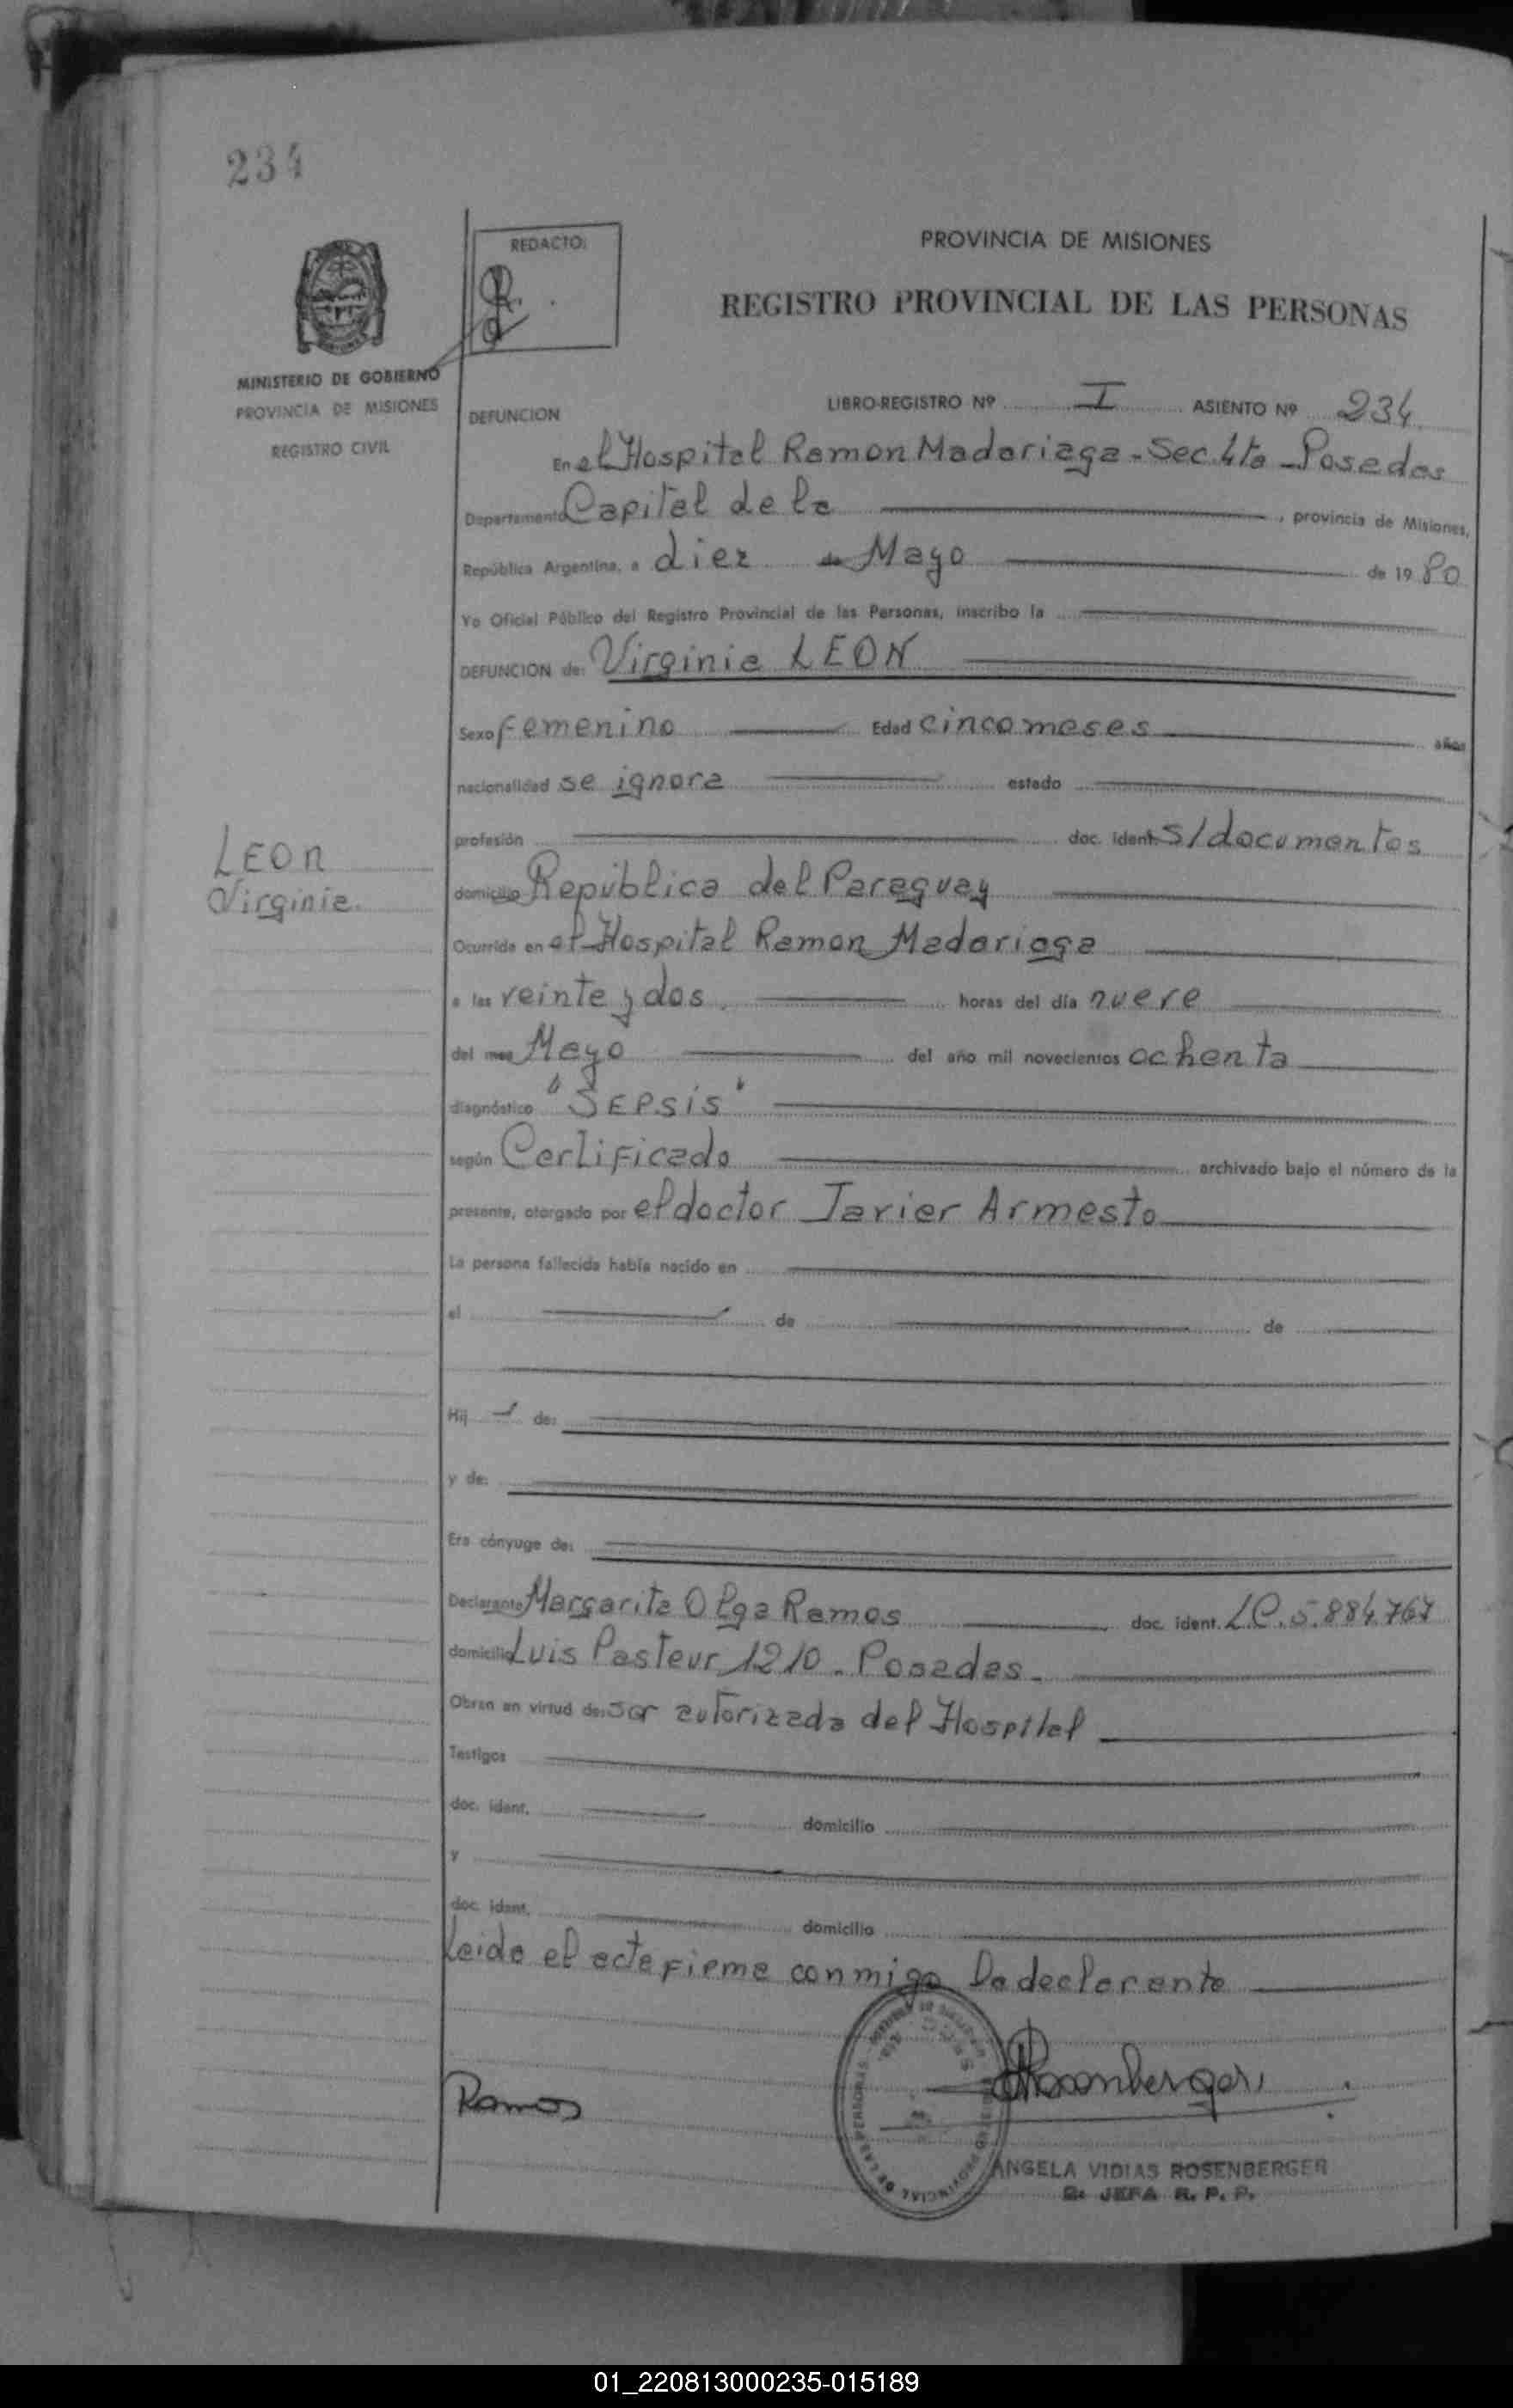 234
REDACTO:
PROVINCIA DE MISIONES
REGISTRO PROVINCIAL DE LAS PERSONAS
MINISTERIO DE GOBIERNO
PROVINCIA DE MISIONES
REGISTRO CIVIL
DEFUNCION
LIBRO-REGISTRO Nº I ASIENTO Nº 234
En el Hospital Ramon Madariaga - Sec. 4ta - Posadas
Departamento Capital de la , provincia de Misiones,
República Argentina, a diez de Mayo de 1980
Yo Oficial Público del Registro Provincial de las Personas, inscribo la
DEFUNCION de: Virginia LEON
Sexo femenino Edad cinco meses años
nacionalidad se ignora estado
profesión doc. ident. S/documentos
LEON
Virginia.
domicilio República del Paraguay
Ocurrida en el Hospital Ramon Madariaga
a las veinte y dos horas del día nueve
del mes Mayo del año mil novecientos ochenta
diagnóstico "SEPSIS"
según Certificado archivado bajo el número de la
presente, otorgado por el doctor Javier Armesto
La persona fallecida había nacido en
el de de
Hij de:
y de:
Era cónyuge de:
Declarante Margarita Olga Ramos doc. ident. L.C. 5.884.767
domicilio Luis Pasteur 1210. Posadas.
Obran en virtud de: ser autorizada del Hospital
Testigos
doc. ident. domicilio
y
doc. ident. domicilio
Leida el acta firma conmigo La declarante
Ramos
Rosenberger
ANGELA VIDIAS ROSENBERGER
JEFA R. P. P.
01_220813000235-015189